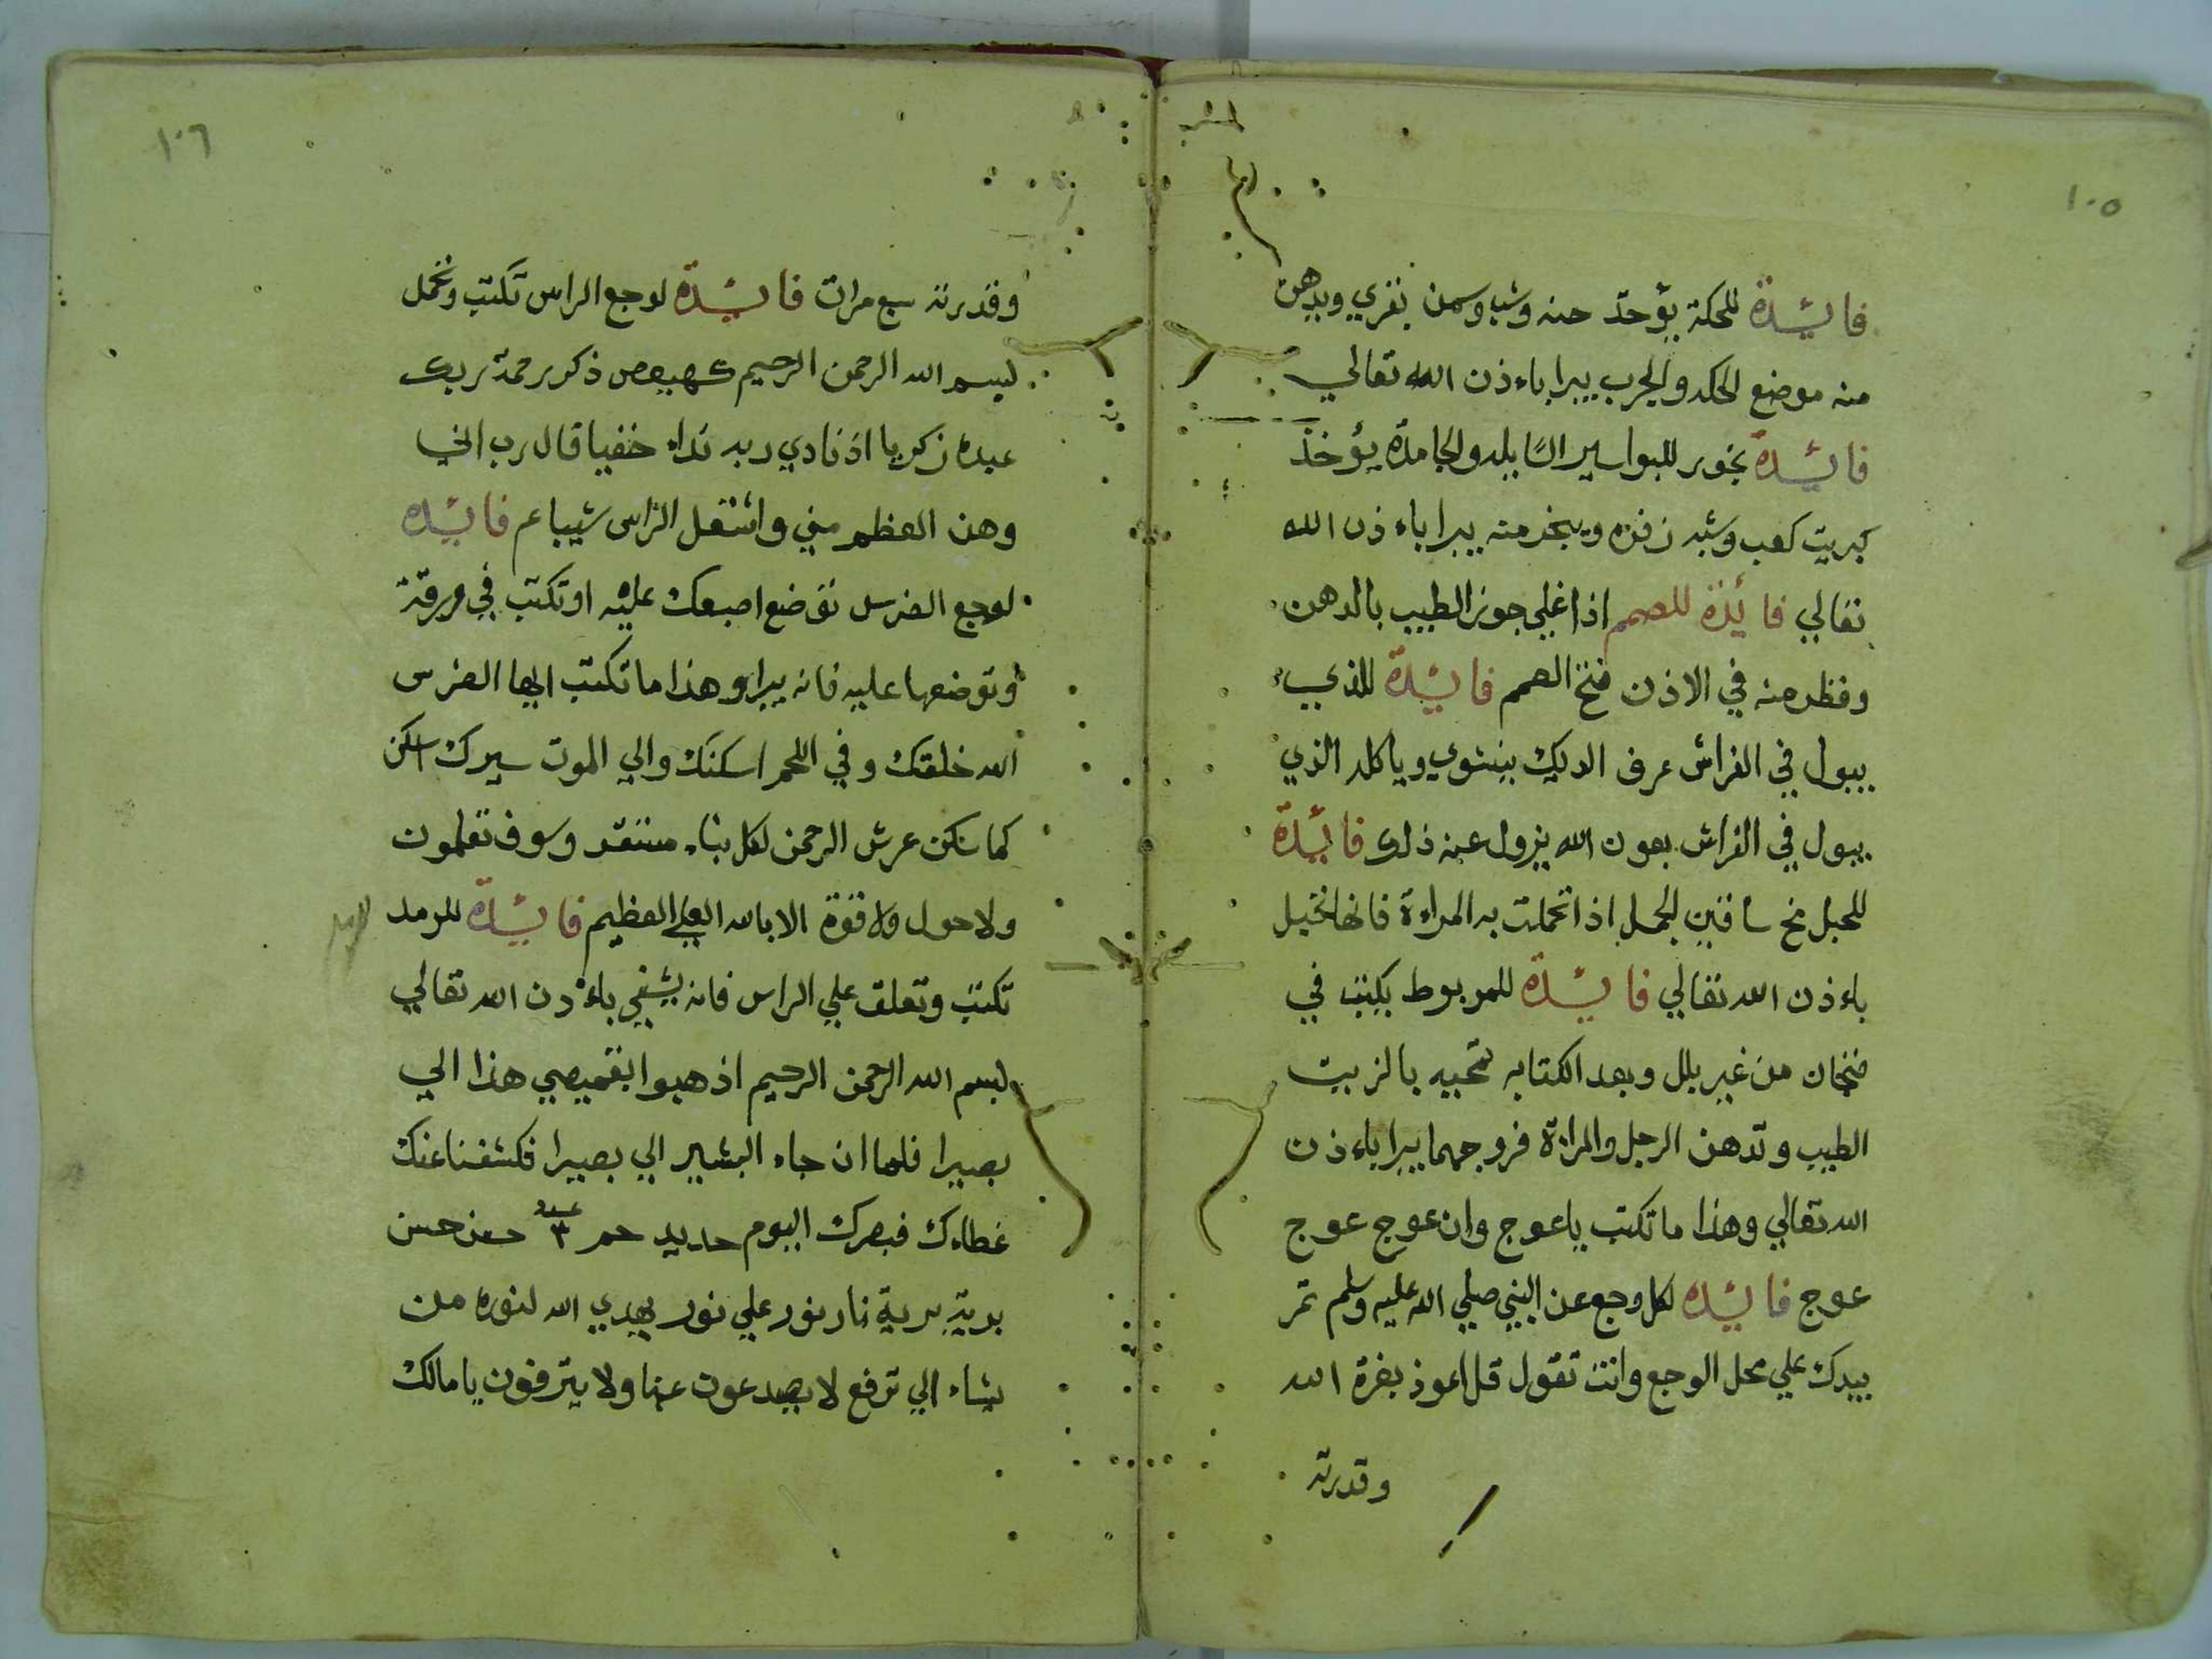 ١٠٥
فائدة للحكة يؤخذ حنه وشبا وسمن بقري ويدهن
منه موضع الحكه والجرب يبرا باءذن الله تعالي
فائدة بخور للبواسير السايله والجامدة يؤخذ
كبريت كعب وشبه زفره ويبخر منه يبرا باءذن الله
تعالي فائدة للصمم اذا غلي جوز الطيب بالدهن
وقطر منه في الاذن فتح الصمم فائدة للذي
يبول في الفراش عرف الديك ينشوي وياكله الذي
يبول في الفراش بعون الله يزول عنه ذلك فائدة
للحبل مخ ساقين الجمل اذا تحملت به المراءة فانها تحبل
باءذن الله تعالي فائدة للمربوط يكتب في
فنجان من غير بلل وبعد الكتابه تمحيه بالزيت
الطيب وتدهن الرجل والمراة فروجهما يبرا باءذن
الله تعالي وهذا ما تكتب ياعوج وان عوج عوج
عوج فائده لكل وجع عن النبي صلي الله عليه وسلم تمر
بيدك علي محل الوجع وانت تقول قل اعوذ بعزة الله
وقدرته
١٠٦
وقدرته سبع مرات فائدة لوجع الراس تكتب وتحمل
بسم الله الرحمن الرحيم كهيعص ذكر رحمة ربك
عبده زكريا اذ نادي ربه نداء خفيا قال رب اني
وهن العظم مني واشتعل الراس شيبا عم فائده
لوجع الضرس توضع اصبعك عليه او تكتب في ورقة
وتوضعها عليه فانه يبرا وهذا ما تكتب ايها الضرس
الله خلقك وفي اللحم اسكنك والي الموت سيرك اسكن
كما سكن عرش الرحمن لكل بناء مستقر وسوف تعلمون
ولا حول ولا قوة الا بالله العلي العظيم فائدة للرمد
تكتب وتعلق علي الراس فانه يشفي باءذن الله تعالي
بسم الله الرحمن الرحيم اذهبوا بقميصي هذا الي
بصيرا فلما ان جاء البشير الي بصيرا فكشفنا عنك
غطاءك فبصرك اليوم حديد حم ٣ حسن حسن
برية برية نار نور علي نور يهدي الله لنوره من
يشاء الي ترفع لا يصدعون عنها ولا ينزفون يا مالك